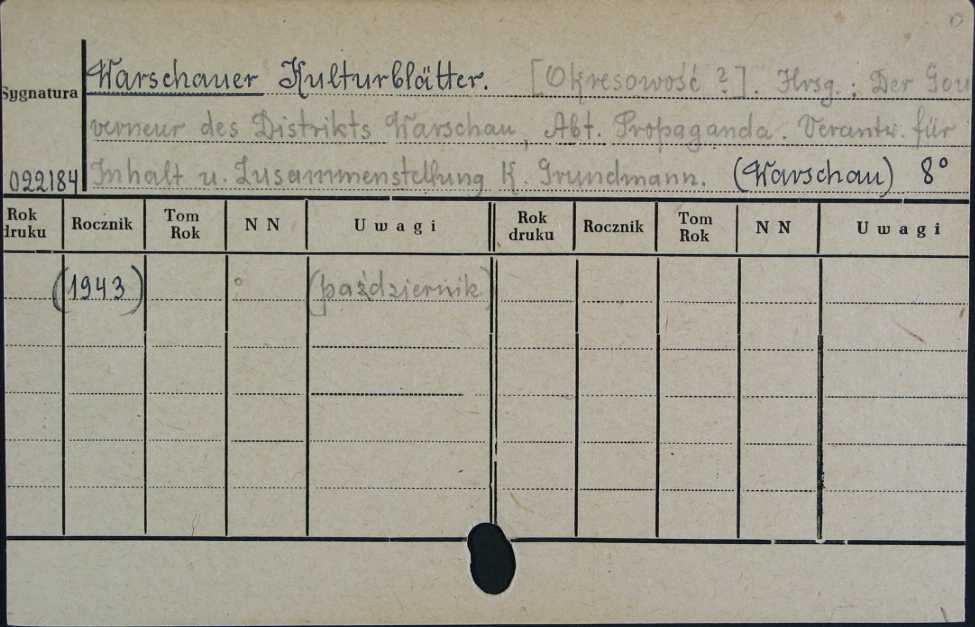 Warschauer Kulturblätter. [Okresowość ?]. Hrsg.: Der Gou
Sygnatura
verneur des Distrikts Warschau, Abt. Propaganda. Verantw. für
022184 Inhalt u. Zusammenstellung K. Grundmann. (Warschau) 8°
Rok druku Rocznik Tom Rok NN Uwagi Rok druku Rocznik Tom Rok NN Uwagi
(1943) (październik)